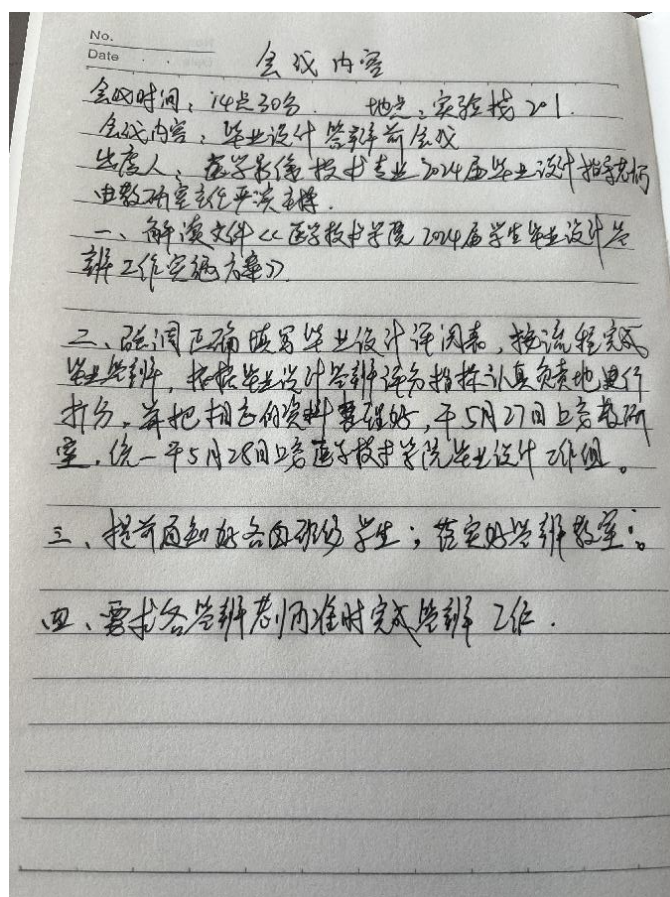 No.
Date
会议内容
会议时间：14点30分. 地点：实验楼201.
会议内容：毕业设计答辩前会议
出席人：医学影像技术专业2024届毕业设计指导老师
由教研室主任严滨主持.
一、解读文件<<医学技术学院2024届学生毕业设计答
辩工作实施方案>>
二、强调正确填写毕业设计评阅表，按流程完成
毕业答辩，根据毕业设计答辩评分指标认真负责地进行
打分，并把相应的资料整理好，于5月27日上交教研
室，统一于5月28日上交医学技术学院毕业设计工作组。
三、提前通知好各自班级学生；落实好答辩教室；。
四、要求各答辩老师准时完成答辩工作.